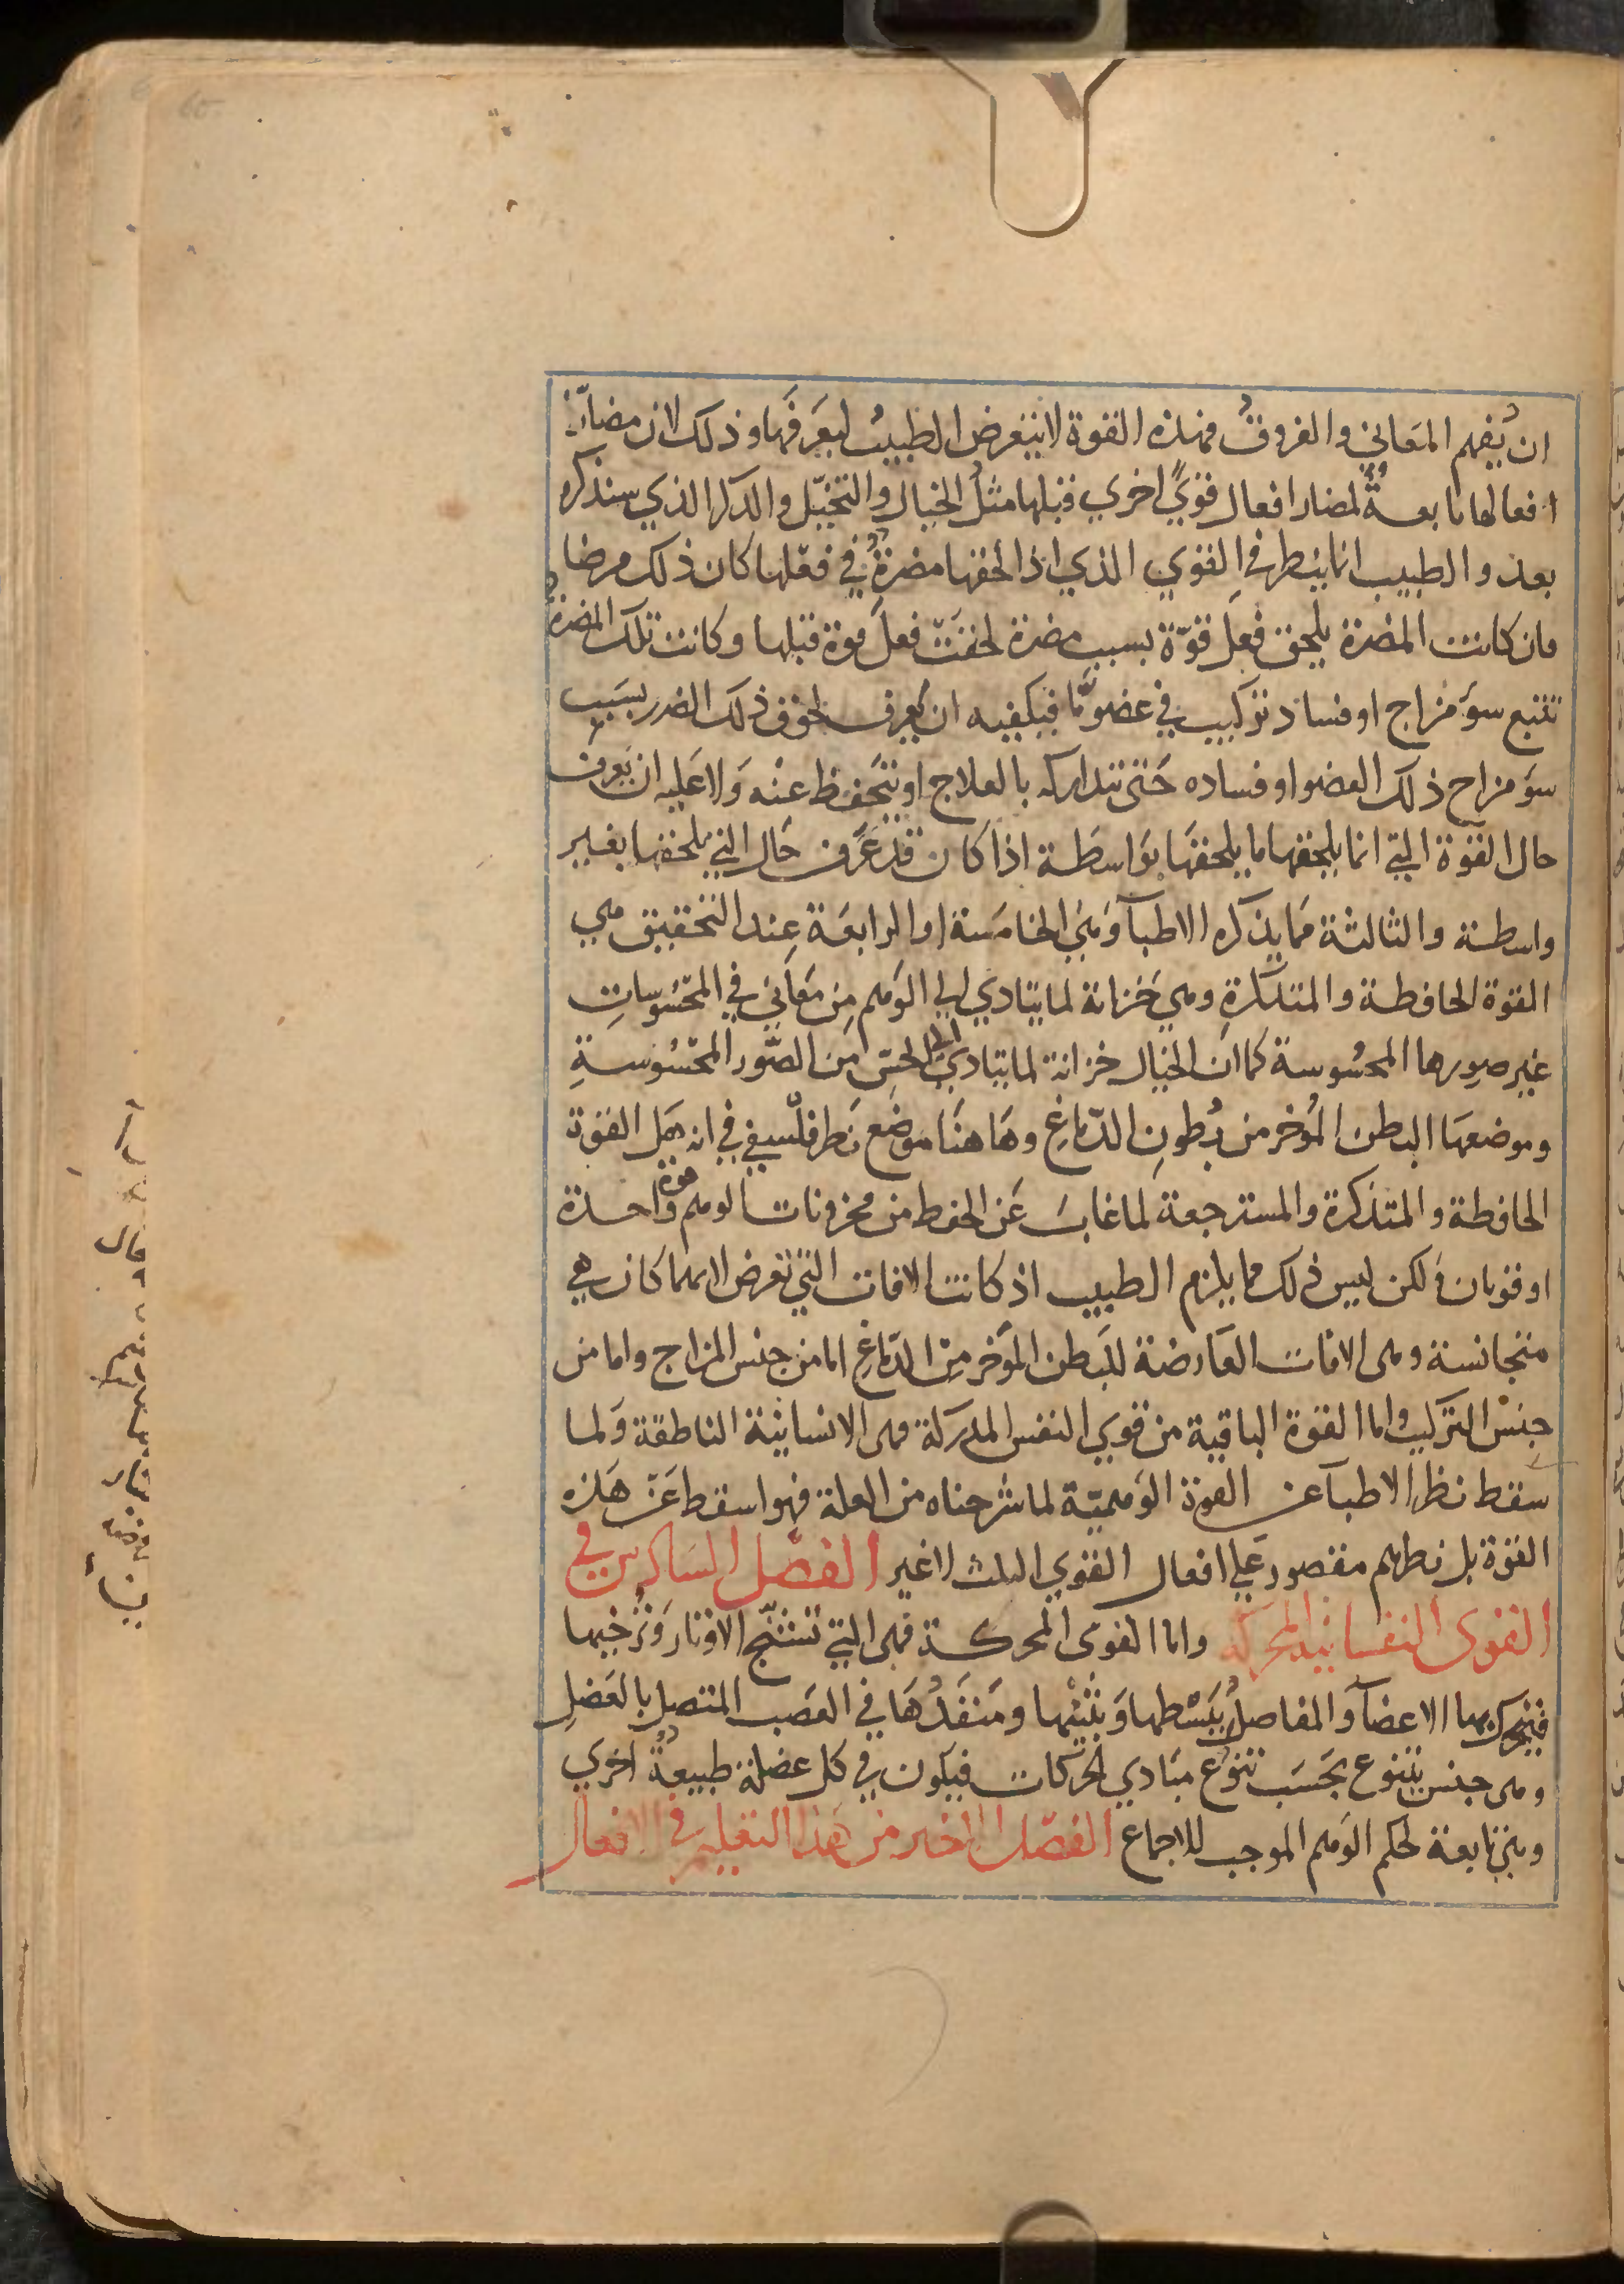 ان يُفهم المعاني والفروق فهذه القوة لا يتعرض الطبيب لتعرفها وذلك لان مضارّ
افعالها تابعةٌ لمضار افعال قويً اخري قبلها مثل الخيال والتخيّل والذكر الذي سنذكره
بعد والطبيب انما ينظر في القوي الذي اذا لحقها مضرةٌ في فعلها كان ذلك مرضا
فان كانت المضرة يلحق فعل قوّة بسبب مضرة لحقت فعل قوة قبلها وكانت تلك المضرة
تتبع سوَ مزاج او فساد تركيب في عضو مّا فيكفيه ان يعرف لحوق ذلك الضرر بسبب
سوَ مزاج ذلك العضو او فساده حتى يتداركه بالعلاج او يتحفظ عنه ولا عليه ان يعرف
حال القوة التي انما يلحقها ما يلحقها بواسطة اذا كان قد عرف حال التي يلحقها بغير
واسطة والثالثة مما يذكره الاطبآ وهي الخامسة او الرابعة عند التحقيق هي
القوة الحافظة والمتذكرة وهي خزانة لما يتادي الي الوهم من معاني في المحسوسات
غير صورها المحسوسة كما ان الخيال خزانة لما يتادي الي الحس من الصور المحسوسة
وموضعها البطن المُوخر من بُطونِ الدّماغ وهاهنا موضع نظر فلسفي في انه هل القوة
الحافظة والمتذكرة والمسترجعة لما غاب عن الحفظ من مخزونات الوهم قوة واحدة
او قوتان ولكن ليس ذلك مما يلزم الطبيب اذ كانت الافات التي تعرض لايهما كان هي
متجانسة وهى الافات العارضة للبطن المؤخر من الدماغ اما من جنس المزاج واما من
جنس التركيب واما القوة الباقية من قوي النفس المدركة فهى الانسانية الناطقة ولما
سقط نظر الاطبآ عن القوة الوهمية لما شرحناه من العلة فهو اسقط عن هذه
القوة بل نظرهم مقصور علي افعال القوي الثلث لا غير الفصل السادس في
القوى النفسانيه المحركه واما القوى المحركة فهى التي تشنّج الاوتار وترخيها
فتحرك بها الاعضآ والمفاصل يبسطها ويثنيها ومنفذها في العصب المتصل بالعضل
وهى جنس يتنوع بحسب تنوع مبادي الحركات فيكون في كل عضلة طبيعة اخري
وهي تابعة لحكم الوهم الموجب للاجماع الفصل الاخير من هذا التعليم في الافعال